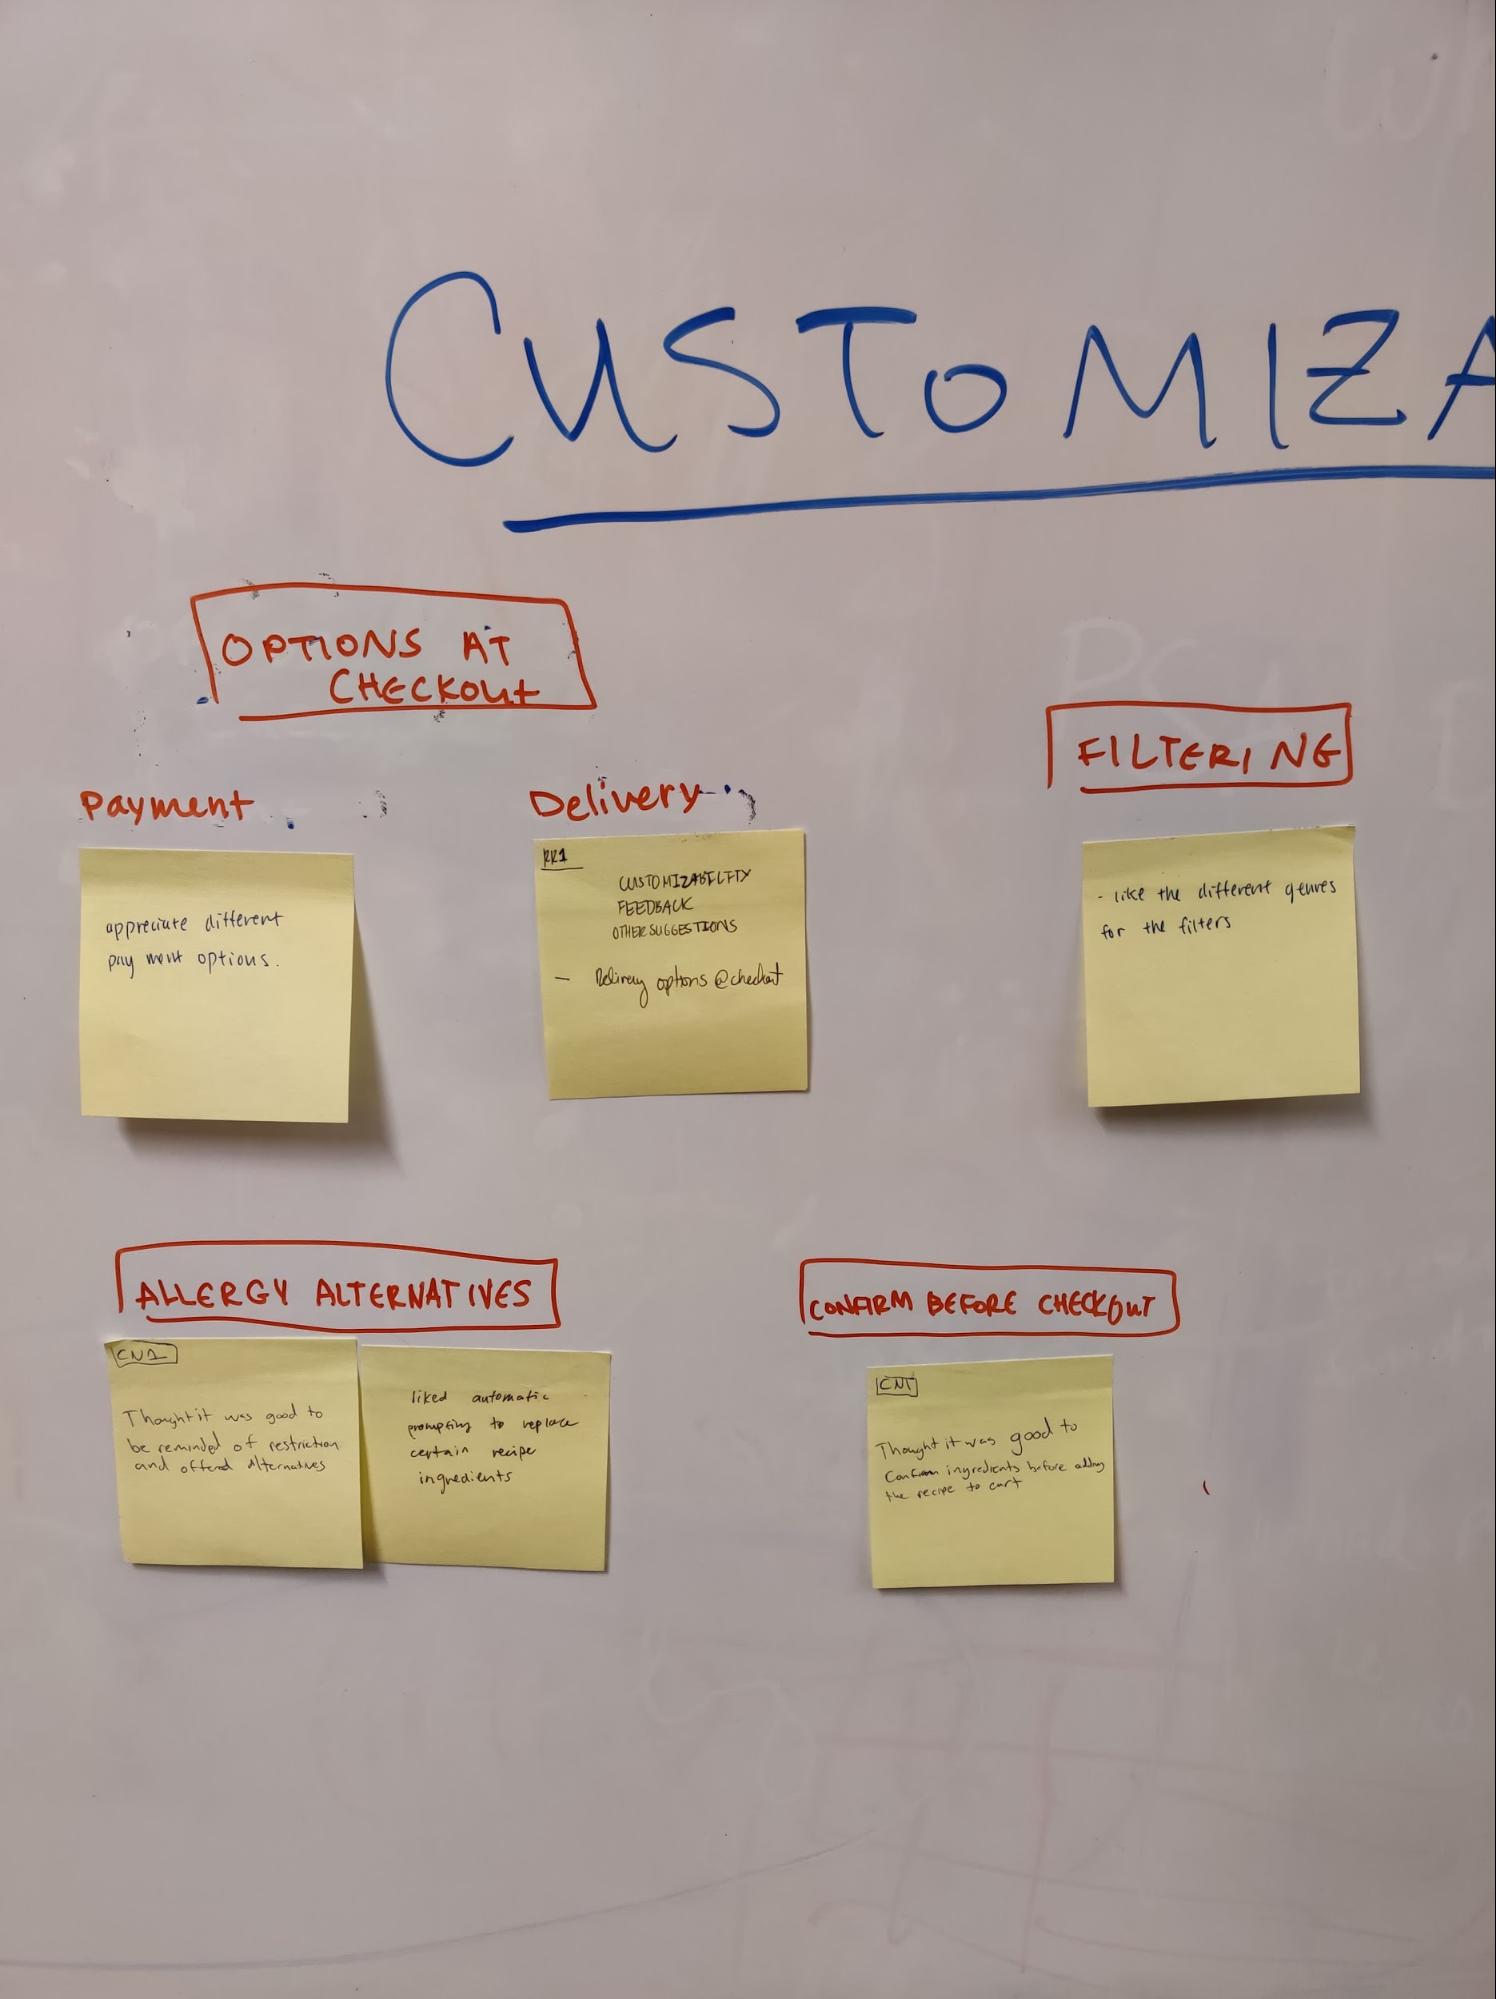 CUSTOMIZA
OPTIONS AT
CHECKOUT
Payment
appreciate different
payment options.
Delivery
RR1
CUSTOMIZABILITY
FEEDBACK
OTHER SUGGESTIONS
- Delivery options @checkout
FILTERING
- like the different genres
for the filters
ALLERGY ALTERNATIVES
CN1
Thought it was good to
be reminded of restriction
and offered alternatives
liked automatic
prompting to replace
certain recipe
ingredients
CONFIRM BEFORE CHECKOUT
CN1
Thought it was good to
Confirm ingredients before adding
the recipe to cart